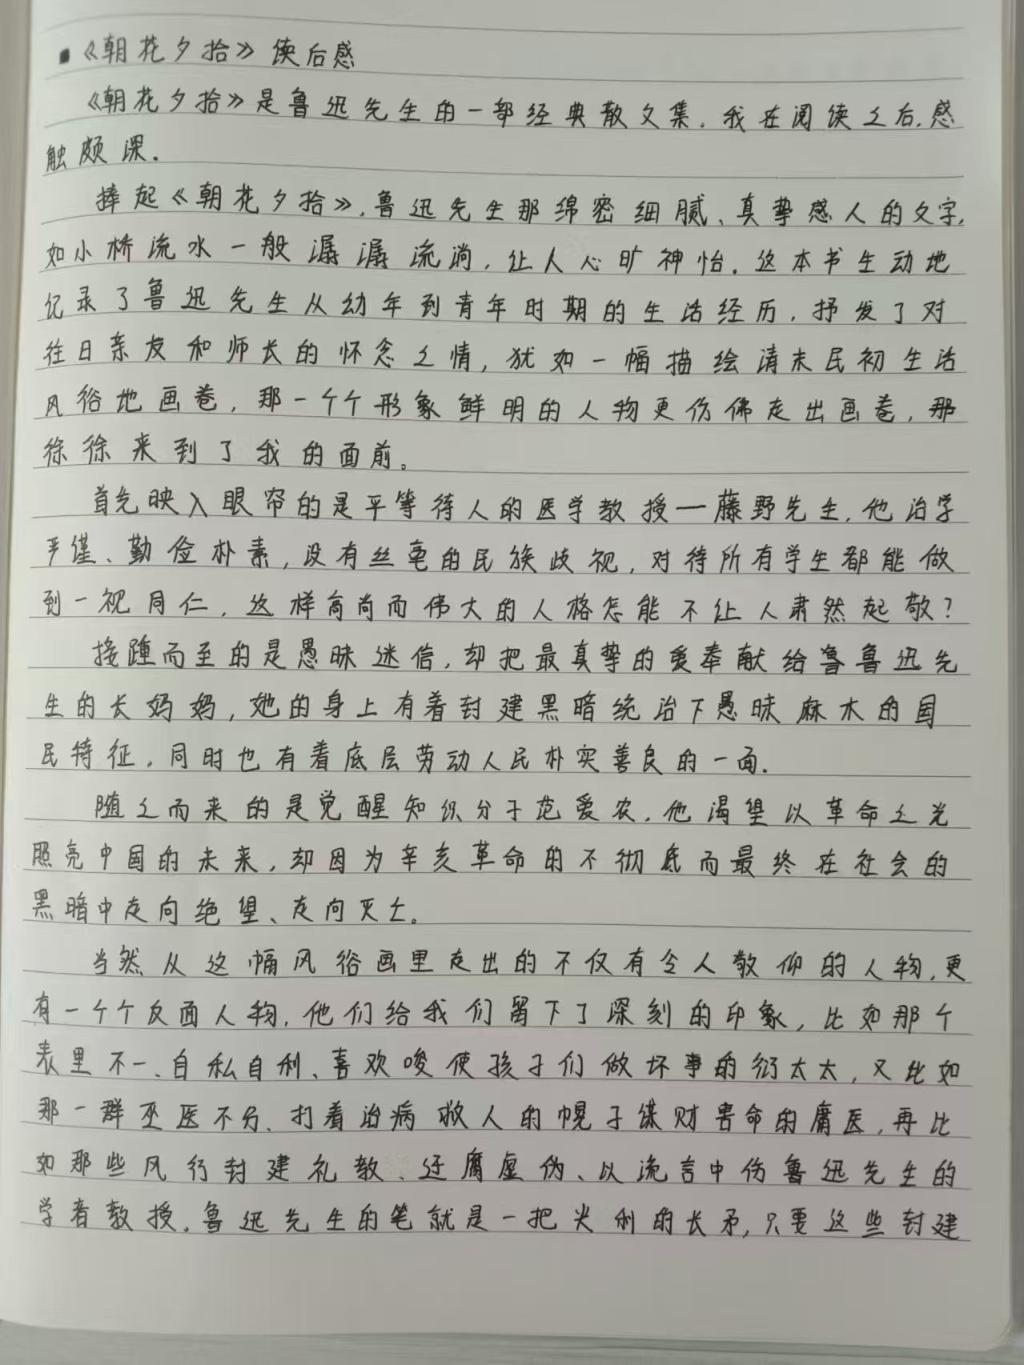 《朝花夕拾》读后感
《朝花夕拾》是鲁迅先生的一部经典散文集.我在阅读之后.感
触颇深.
捧起《朝花夕拾》,鲁迅先生那绵密细腻、真挚感人的文字,
如小桥流水一般潺潺流淌,让人心旷神怡.这本书生动地
记录了鲁迅先生从幼年到青年时期的生活经历,抒发了对
往日亲友和师长的怀念之情,犹如一幅描绘清末民初生活
风俗地画卷,那一个个形象鲜明的人物更仿佛走出画卷,那
徐徐来到了我的面前。
首先映入眼帘的是平等待人的医学教授一藤野先生.他治学
严谨、勤俭朴素,没有丝毫的民族歧视,对待所有学生都能做
到一视同仁,这样高尚而伟大的人格怎能不让人肃然起敬?
接踵而至的是愚昧迷信,却把最真挚的爱奉献给鲁鲁迅先
生的长妈妈,她的身上有着封建黑暗统治下愚昧麻木的国
民特征,同时也有着底层劳动人民朴实善良的一面.
随之而来的是觉醒知识分子范爱农.他渴望以革命之光
照亮中国的未来,却因为辛亥革命的不彻底而最终在社会的
黑暗中走向绝望、走向灭亡。
当然从这幅风俗画里走出的不仅有令人敬仰的人物,更
有一个个反面人物.他们给我们留下了深刻的印象,比如那个
表里不一、自私自利、喜欢唆使孩子们做坏事的衍太太,又比如
那一群巫医不分、打着治病救人的幌子谋财害命的庸医,再比
如那些风行封建礼教、迂腐虚伪、以流言中伤鲁迅先生的
学者教授.鲁迅先生的笔就是一把尖利的长矛,只要这些封建